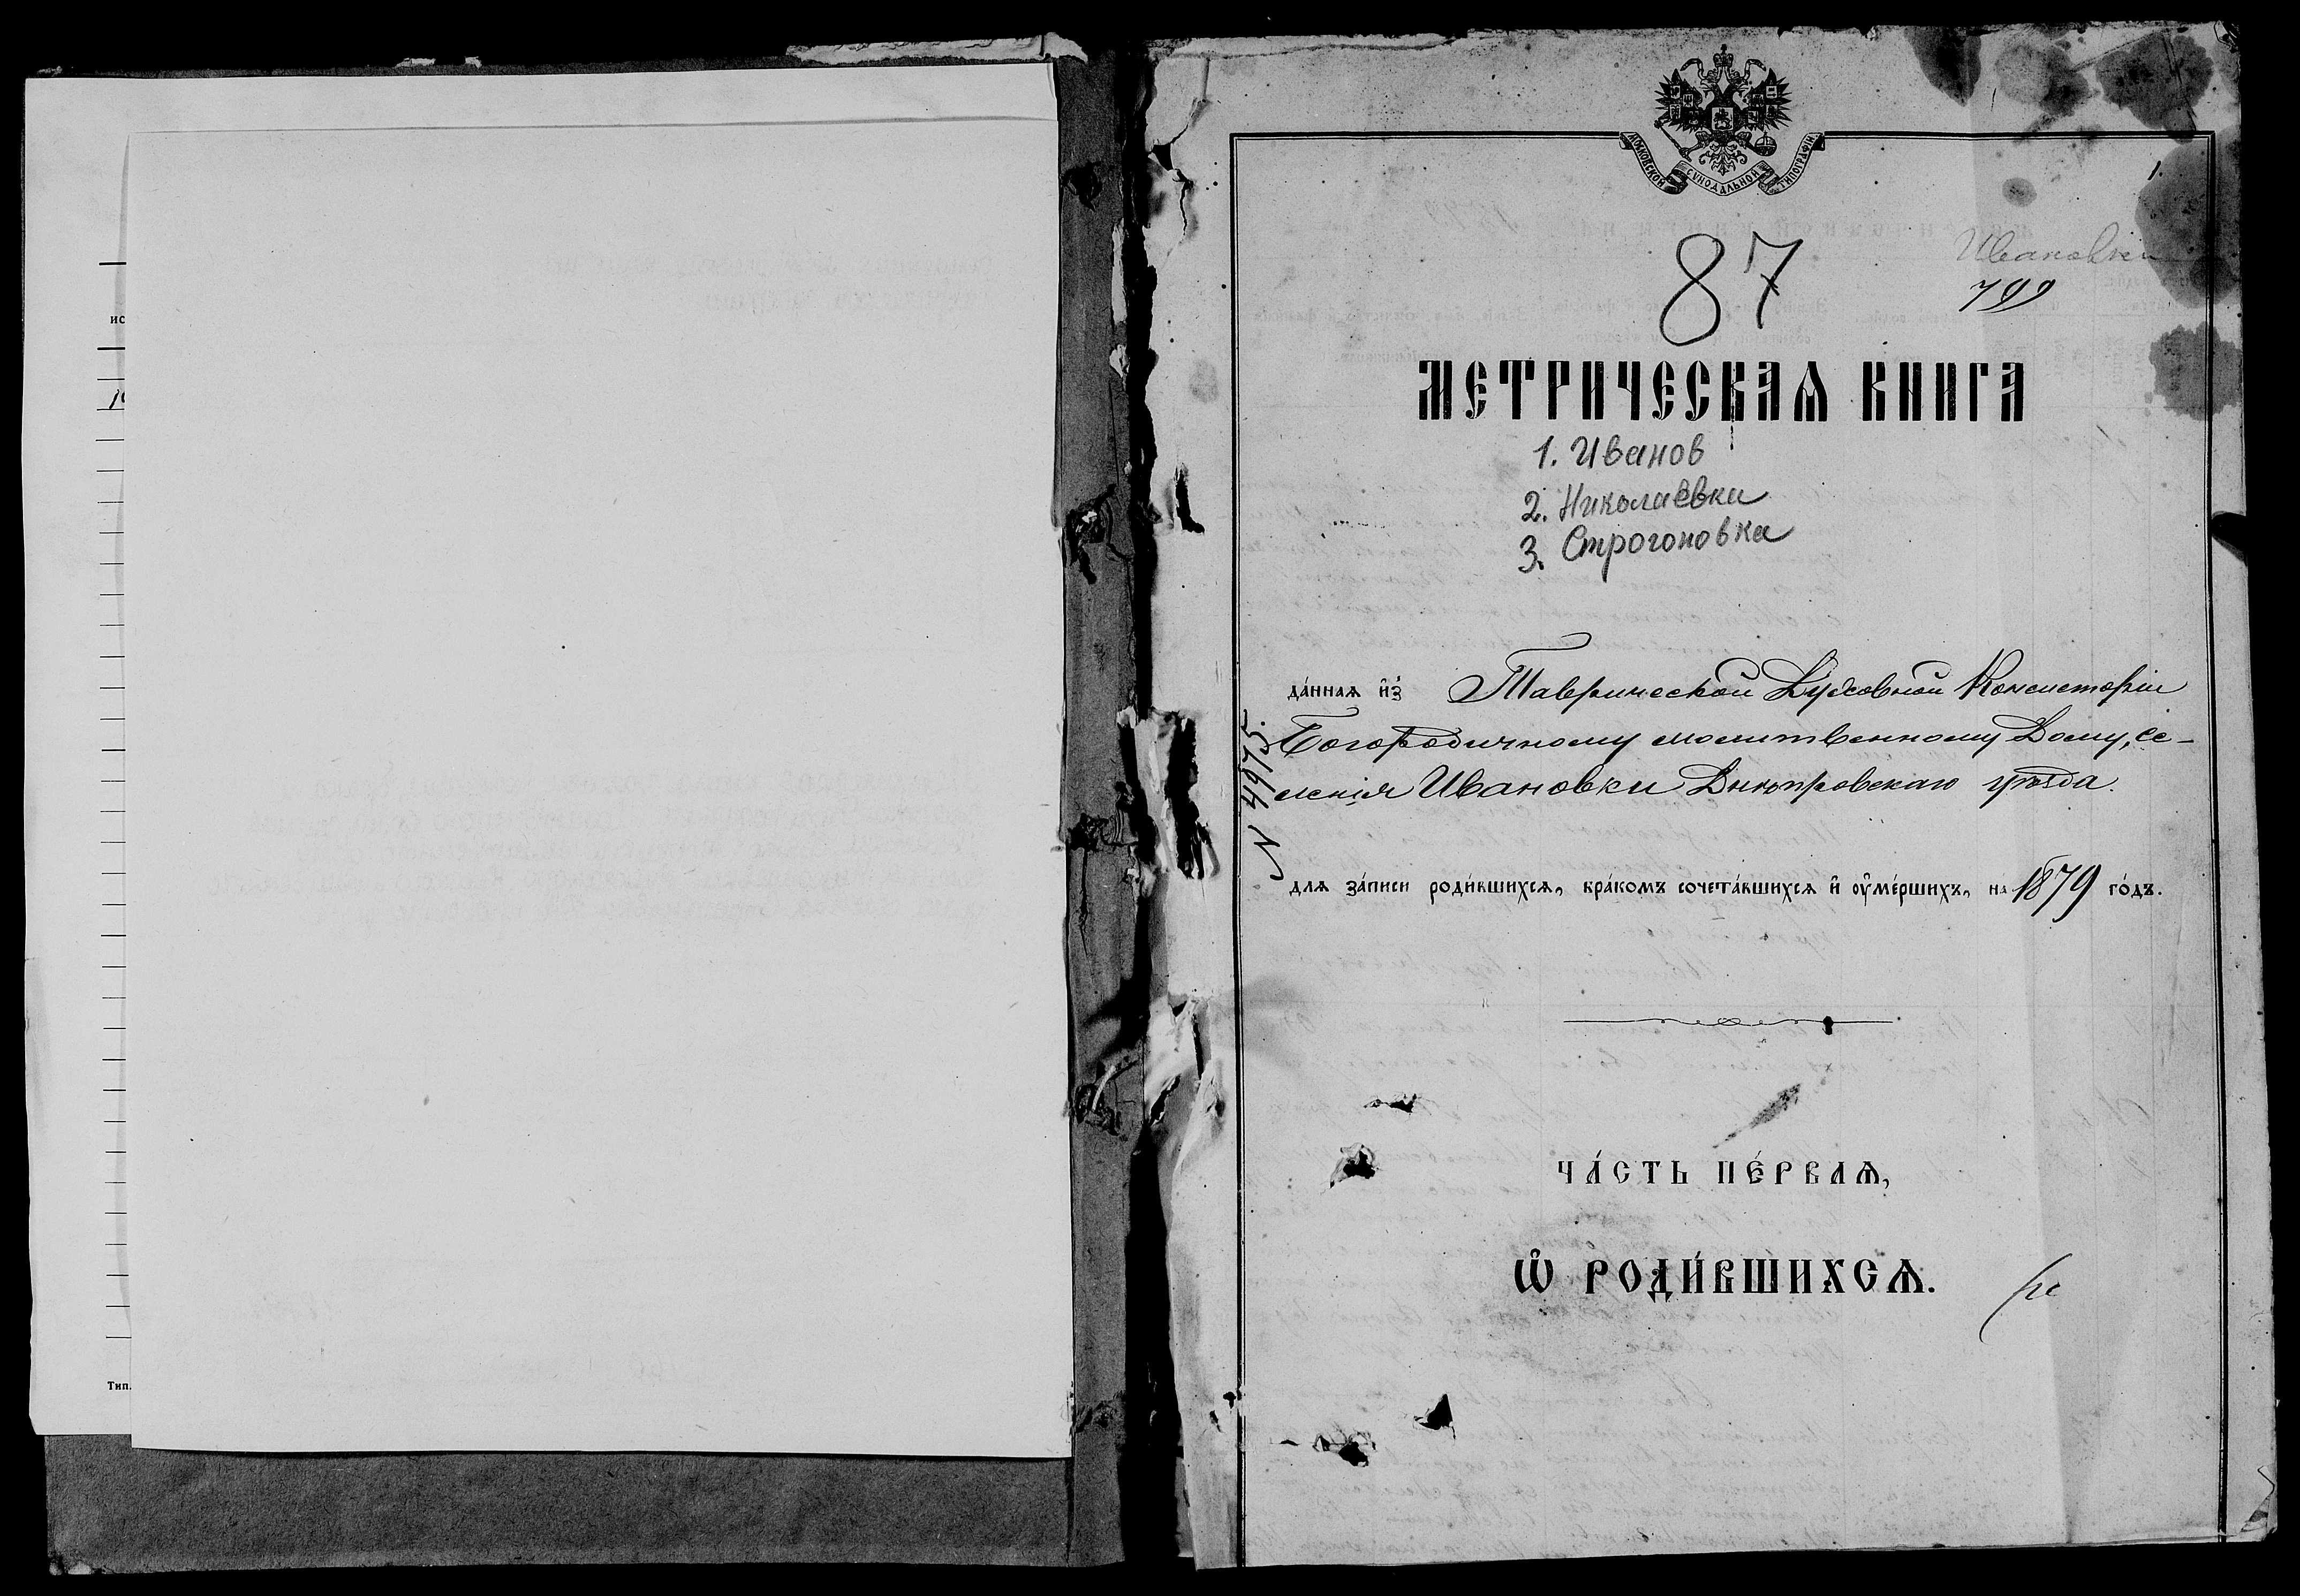 ис
Тип.
МОСКОВСКОЙ СѴНОДАЛЬНОЙ ТИПОГРАФІИ
1.
87
Ивановки
799
МЕТРИЧЕСКАѦ КНИГА
1. Иванов
2. Николаевка
3. Строгоновка
да́ннаѧ и҆з̾ Таврической Духовной Консисторіи
Богородичному молитвенному Дому, се-
ленія Ивановки Днѣпровскаго уѣзда.
N 4975.
длѧ за́писи роди́вшихсѧ, бра́комъ сочета́вшихсѧ и҆ ᲂу҆ме́ршихъ, на 1879 го́дъ.
ЧА́СТЬ ПЕ́РВАѦ,
Ѡ҆ РОДИ́ВШИХСѦ.